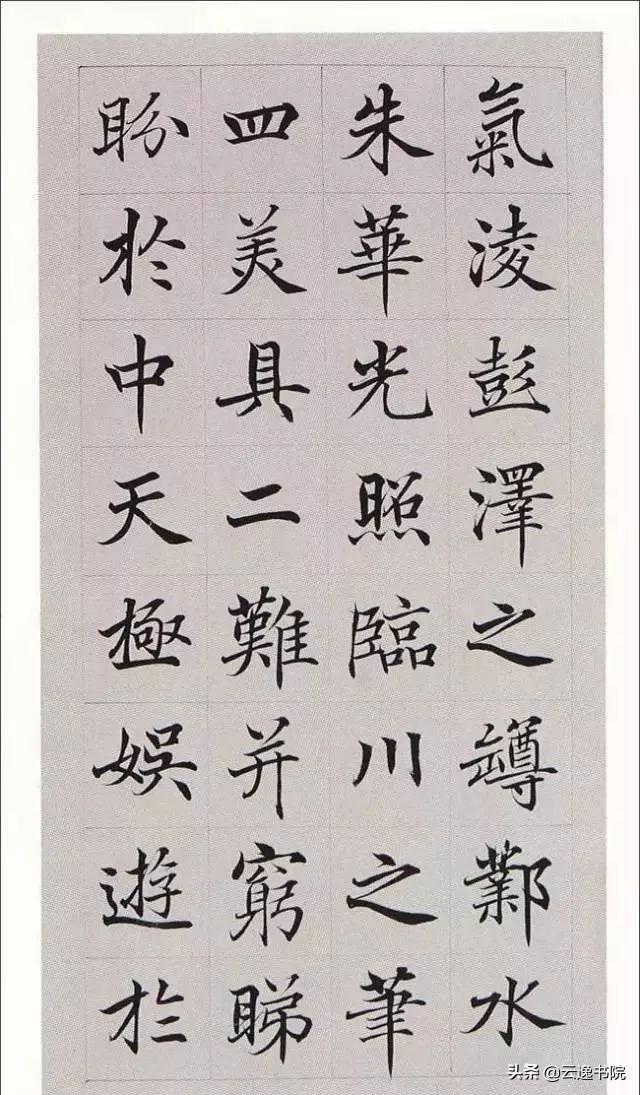 氣淩彭澤之罇鄴水
朱華光照臨川之筆
四美具二難并窮睇
盼於中天極娛遊於
头条 @云逸书院